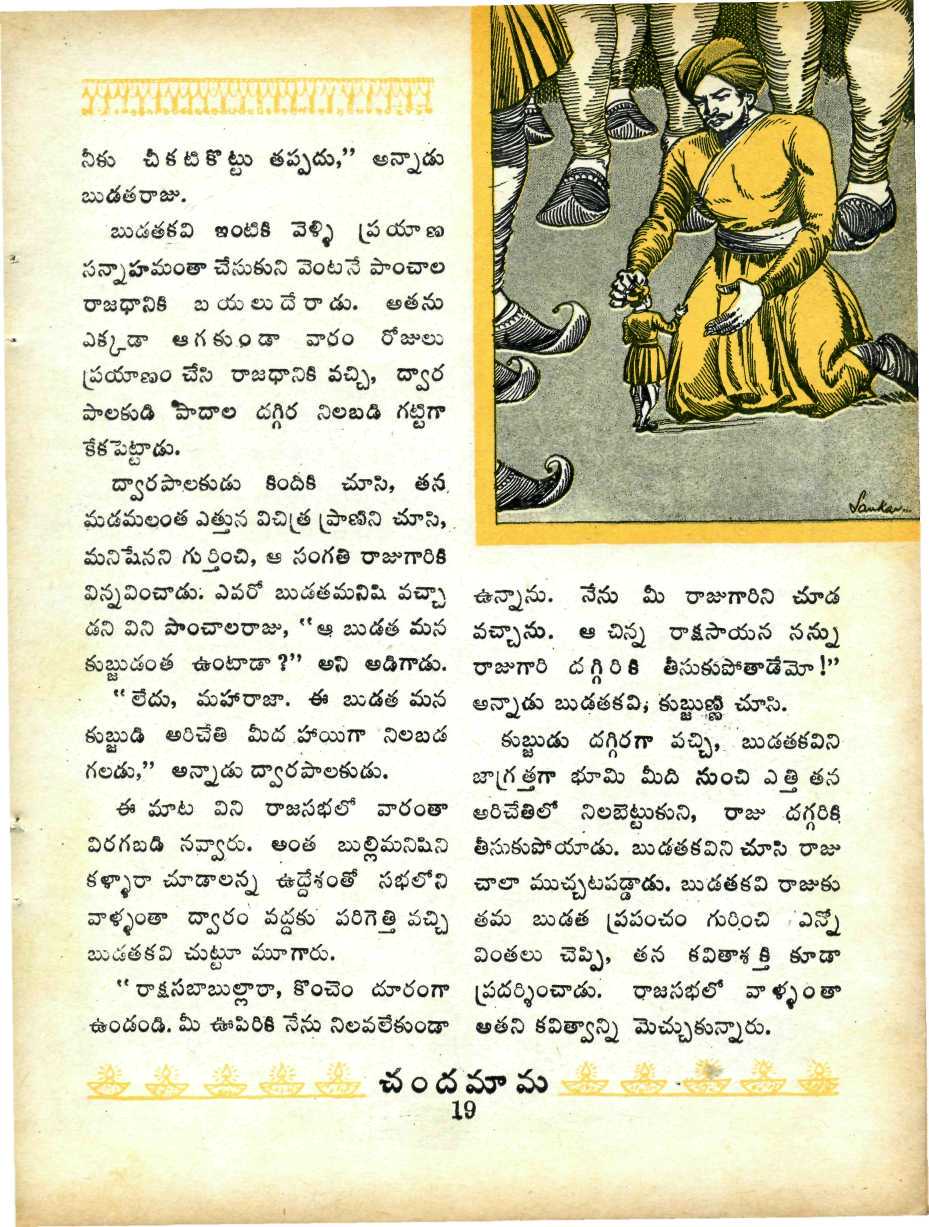 నీకు చీకటికొట్టు తప్పదు,” అన్నాడు
బుడతరాజు.
బుడతకవి ఇంటికి వెళ్ళి ప్రయాణ
సన్నాహమంతా చేసుకుని వెంటనే పాంచాల
రాజధానికి బయలుదేరాడు. అతను
ఎక్కడా ఆగకుండా వారం రోజులు
ప్రయాణం చేసి రాజధానికి వచ్చి, ద్వార
పాలకుడి పాదాల దగ్గిర నిలబడి గట్టిగా
కేకపెట్టాడు.
ద్వారపాలకుడు కిందికి చూసి, తన
మడమలంత ఎత్తున విచిత్ర ప్రాణిని చూసి,
మనిషేనని గుర్తించి, ఆ సంగతి రాజుగారికి
విన్నవించాడు. ఎవరో బుడతమనిషి వచ్చా
డని విని పాంచాలరాజు, “ఆ బుడత మన
కుబ్జుడంత ఉంటాడా?” అని అడిగాడు.
“లేదు, మహారాజా. ఈ బుడత మన
కుబ్జుడి అరిచేతి మీద హాయిగా నిలబడ
గలడు,” అన్నాడు ద్వారపాలకుడు.
ఈ మాట విని రాజసభలో వారంతా
విరగబడి నవ్వారు. అంత బుల్లిమనిషిని
కళ్ళారా చూడాలన్న ఉద్దేశంతో సభలోని
వాళ్ళంతా ద్వారం వద్దకు పరిగెత్తి వచ్చి
బుడతకవి చుట్టూ మూగారు.
“రాక్షసబాబుల్లారా, కొంచెం దూరంగా
ఉండండి. మీ ఊపిరికి నేను నిలవలేకుండా
Sankar...
ఉన్నాను. నేను మీ రాజుగారిని చూడ
వచ్చాను. ఆ చిన్న రాక్షసాయన నన్ను
రాజుగారి దగ్గిరికి తీసుకుపోతాడేమో!”
అన్నాడు బుడతకవి, కుబ్జుణ్ణి చూసి.
కుబ్జుడు దగ్గిరగా వచ్చి, బుడతకవిని
జాగ్రత్తగా భూమి మీది నుంచి ఎత్తి తన
అరిచేతిలో నిలబెట్టుకుని, రాజు దగ్గరికి
తీసుకుపోయాడు. బుడతకవిని చూసి రాజు
చాలా ముచ్చటపడ్డాడు. బుడతకవి రాజుకు
తమ బుడత ప్రపంచం గురించి ఎన్నో
వింతలు చెప్పి, తన కవితాశక్తి కూడా
ప్రదర్శించాడు. రాజసభలో వాళ్ళంతా
అతని కవిత్వాన్ని మెచ్చుకున్నారు.
చందమామ
19